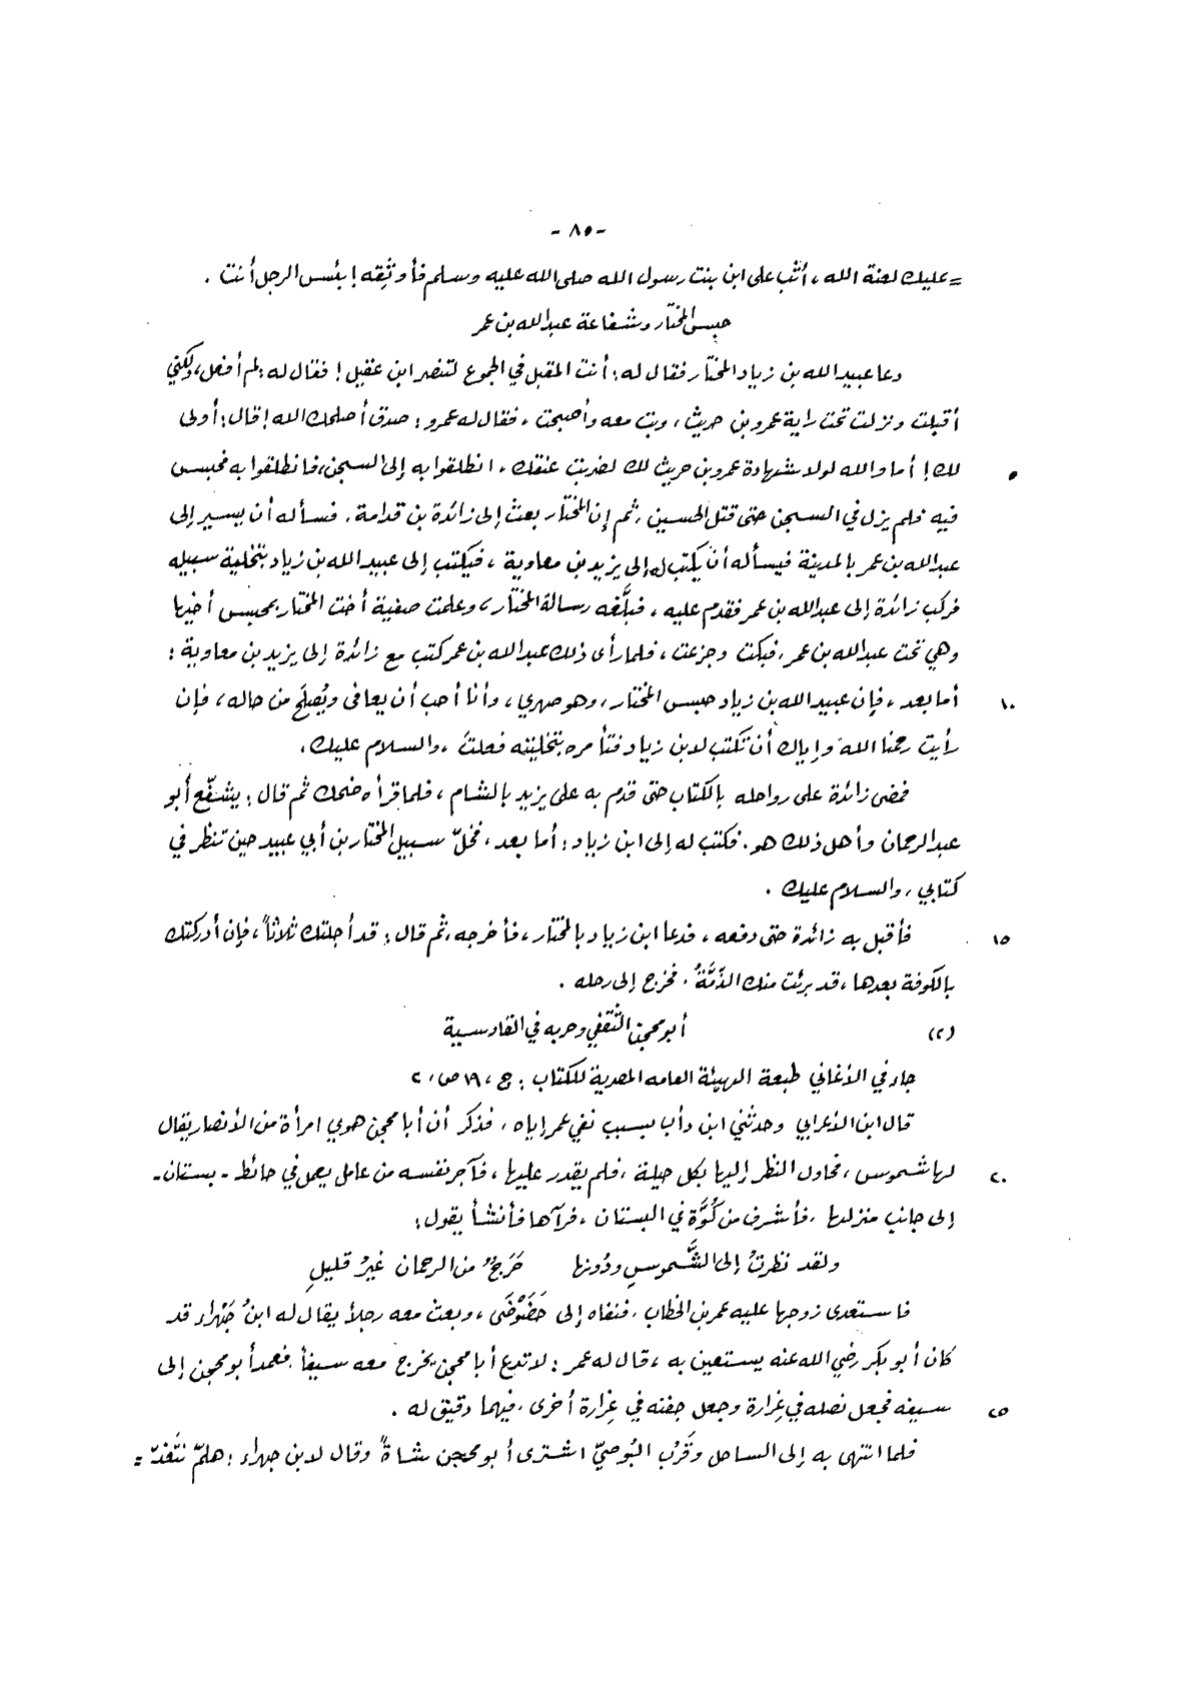 - ٨٥ -
= عليك لعنة الله ، أتثب على ابن بنت رسول الله صلى الله عليه وسلم فأوثقه ! بئس الرجل أنت .
حبس المختار وشفاعة عبدالله بن عمر
دعا عبيد الله بن زياد المختار فقال له : أنت المقبل في الجموع لتنصر ابن عقيل ! فقال له : لم أفعل ، ولكني
أقبلت ونزلت تحت راية عمرو بن حريث ، وبت معه وأصبحت ، فقال له عمرو : صدق أصلحك الله ! قال : أولى
٥ لك ! أما والله لولا شهادة عمرو بن حريث لك لضربت عنقك ، انطلقوا به إلى السجن ، فانطلقوا به فحبس
فيه فلم يزل في السجن حتى قتل الحسين ، ثم إن المختار بعث إلى زائدة بن قدامة ، فسأله أن يسير إلى
عبدالله بن عمر بالمدينة فيسأله أن يكتب له إلى يزيد بن معاوية ، فيكتب إلى عبيد الله بن زياد بتخلية سبيله
فركب زائدة إلى عبدالله بن عمر فقدم عليه ، فبلَّغه رسالة المختار ، وعلمت صفية أخت المختار بمحبس أخيها
وهي تحت عبدالله بن عمر ، فبكت وجزعت ، فلما رأى ذلك عبدالله بن عمر كتب مع زائدة إلى يزيد بن معاوية :
١٠ أما بعد ، فإن عبيد الله بن زياد حبس المختار ، وهو صهري ، وأنا أحب أن يعافى ويُصلَح من حاله ، فإن
رأيت رحمنا الله وإياك أن تكتب لابن زياد فتأمره بتخليته فعلتَ ، والسلام عليك .
فمضى زائدة على رواحله بالكتاب حتى قدم به على يزيد بالشام ، فلما قرأه ضحك ثم قال : يشفّع أبو
عبد الرحمان وأهل ذلك هو . فكتب له إلى ابن زياد : أما بعد ، فخلّ سبيل المختار بن أبي عبيد حين تنظر في
كتابي ، والسلام عليك .
١٥ فأقبل به زائدة حتى دفعه ، فدعا ابن زياد بالمختار ، فأخرجه ، ثم قال : قد أجلتك ثلاثاً ، فإن أدركتك
بالكوفة بعدها ، قد برئت منك الذّمَّةُ . فخرج إلى رحله .
(٢) أبو محجن الثقفي وحربه في القادسية
جاء في الأغاني طبعة الهيئة العامه المصرية للكتاب : ج ، ١٩ ص ، ٢
قال ابن الأعرابي وحدثني ابن دأب بسبب نفي عمر إياه ، فذكر أن أبا محجن هوي امرأة من الأنصار يقال
٢٠ لها شموس ، فحاول النظر إليها بكل حيلة ، فلم يقدر عليها ، فآجر نفسه من عامل يعمل في حائط - بستان -
إلى جانب منزلها ، فأشرف من كُوَّة في البستان ، فرآها فأنشأ يقول :
ولقد نظرتُ إلى الشَّموسِ ودُونها حَرَجٌ من الرحمان غيرُ قليلِ
فاستعدى زوجها عليه عمر بن الخطاب ، فنفاه إلى حَضَوْضَى ، وبعث معه رجلاً يقال له ابنُ جَهْراء قد
كان أبو بكر رضي الله عنه يستعين به ، قال له عمر : لا تدع أبا محجن يخرج معه سيفاً . فعمد أبو محجن إلى
٢٥ سيفه فجعل نصله في غِرارة وجعل جفنه في غِرارة أخرى ، فيهما دقيق له .
فلما انتهى به إلى الساحل وقَرُب البُوصيّ اشترى أبو محجن شاةً وقال لابن جهراء : هلمّ نتَغدّ =